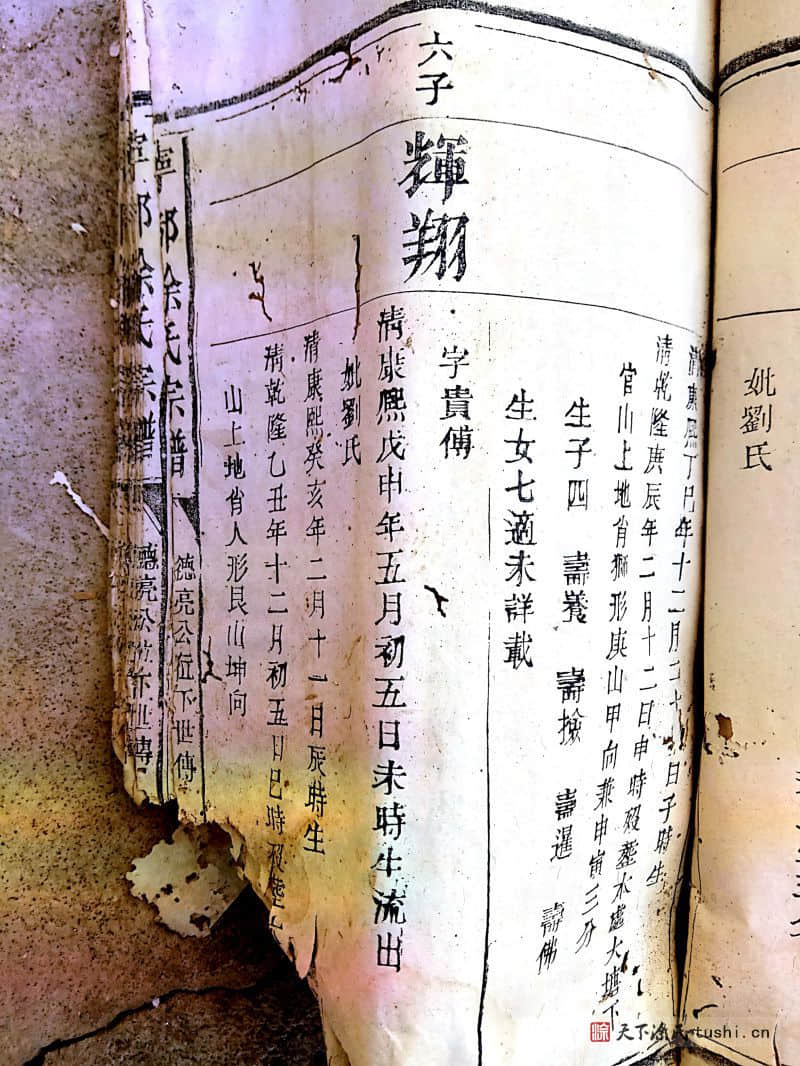 妣劉氏
清康熙丁巳年十二月二十日子時生
清乾隆庚辰年二月十二日申時殁塟水處大塘下
官山上地肖獅形庚山甲向兼申寅三分
生子四 壽養 壽撿 壽暹 壽佛
生女七適未詳載
六子
輝翔
字貴傅
清康熙戊申年五月初五日未時生流出
妣劉氏
清康熙癸亥年二月十一日辰時生
清乾隆乙丑年十二月初五日巳時殁塟
山上地肖人形艮山坤向
寧郡涂氏宗譜
德亮公位下世傳
郡涂氏宗譜
德亮公位下世傳
天下涂氏tushi.cn